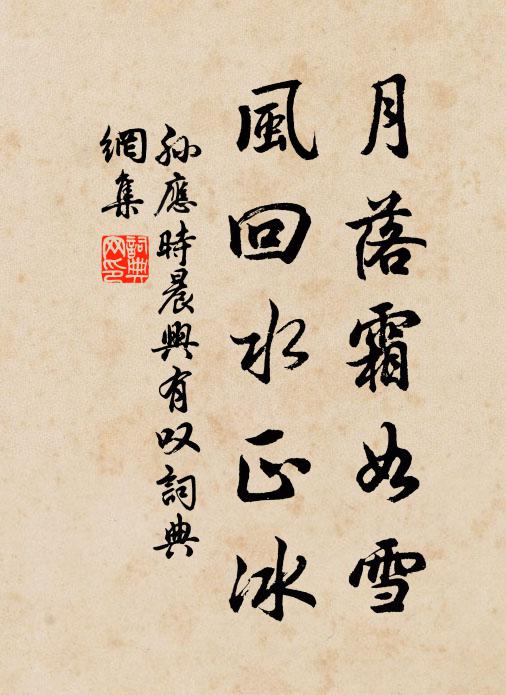 月落霜如雪
風回水正冰
孫應時晨興有叹詞典
網集
詞典
网印